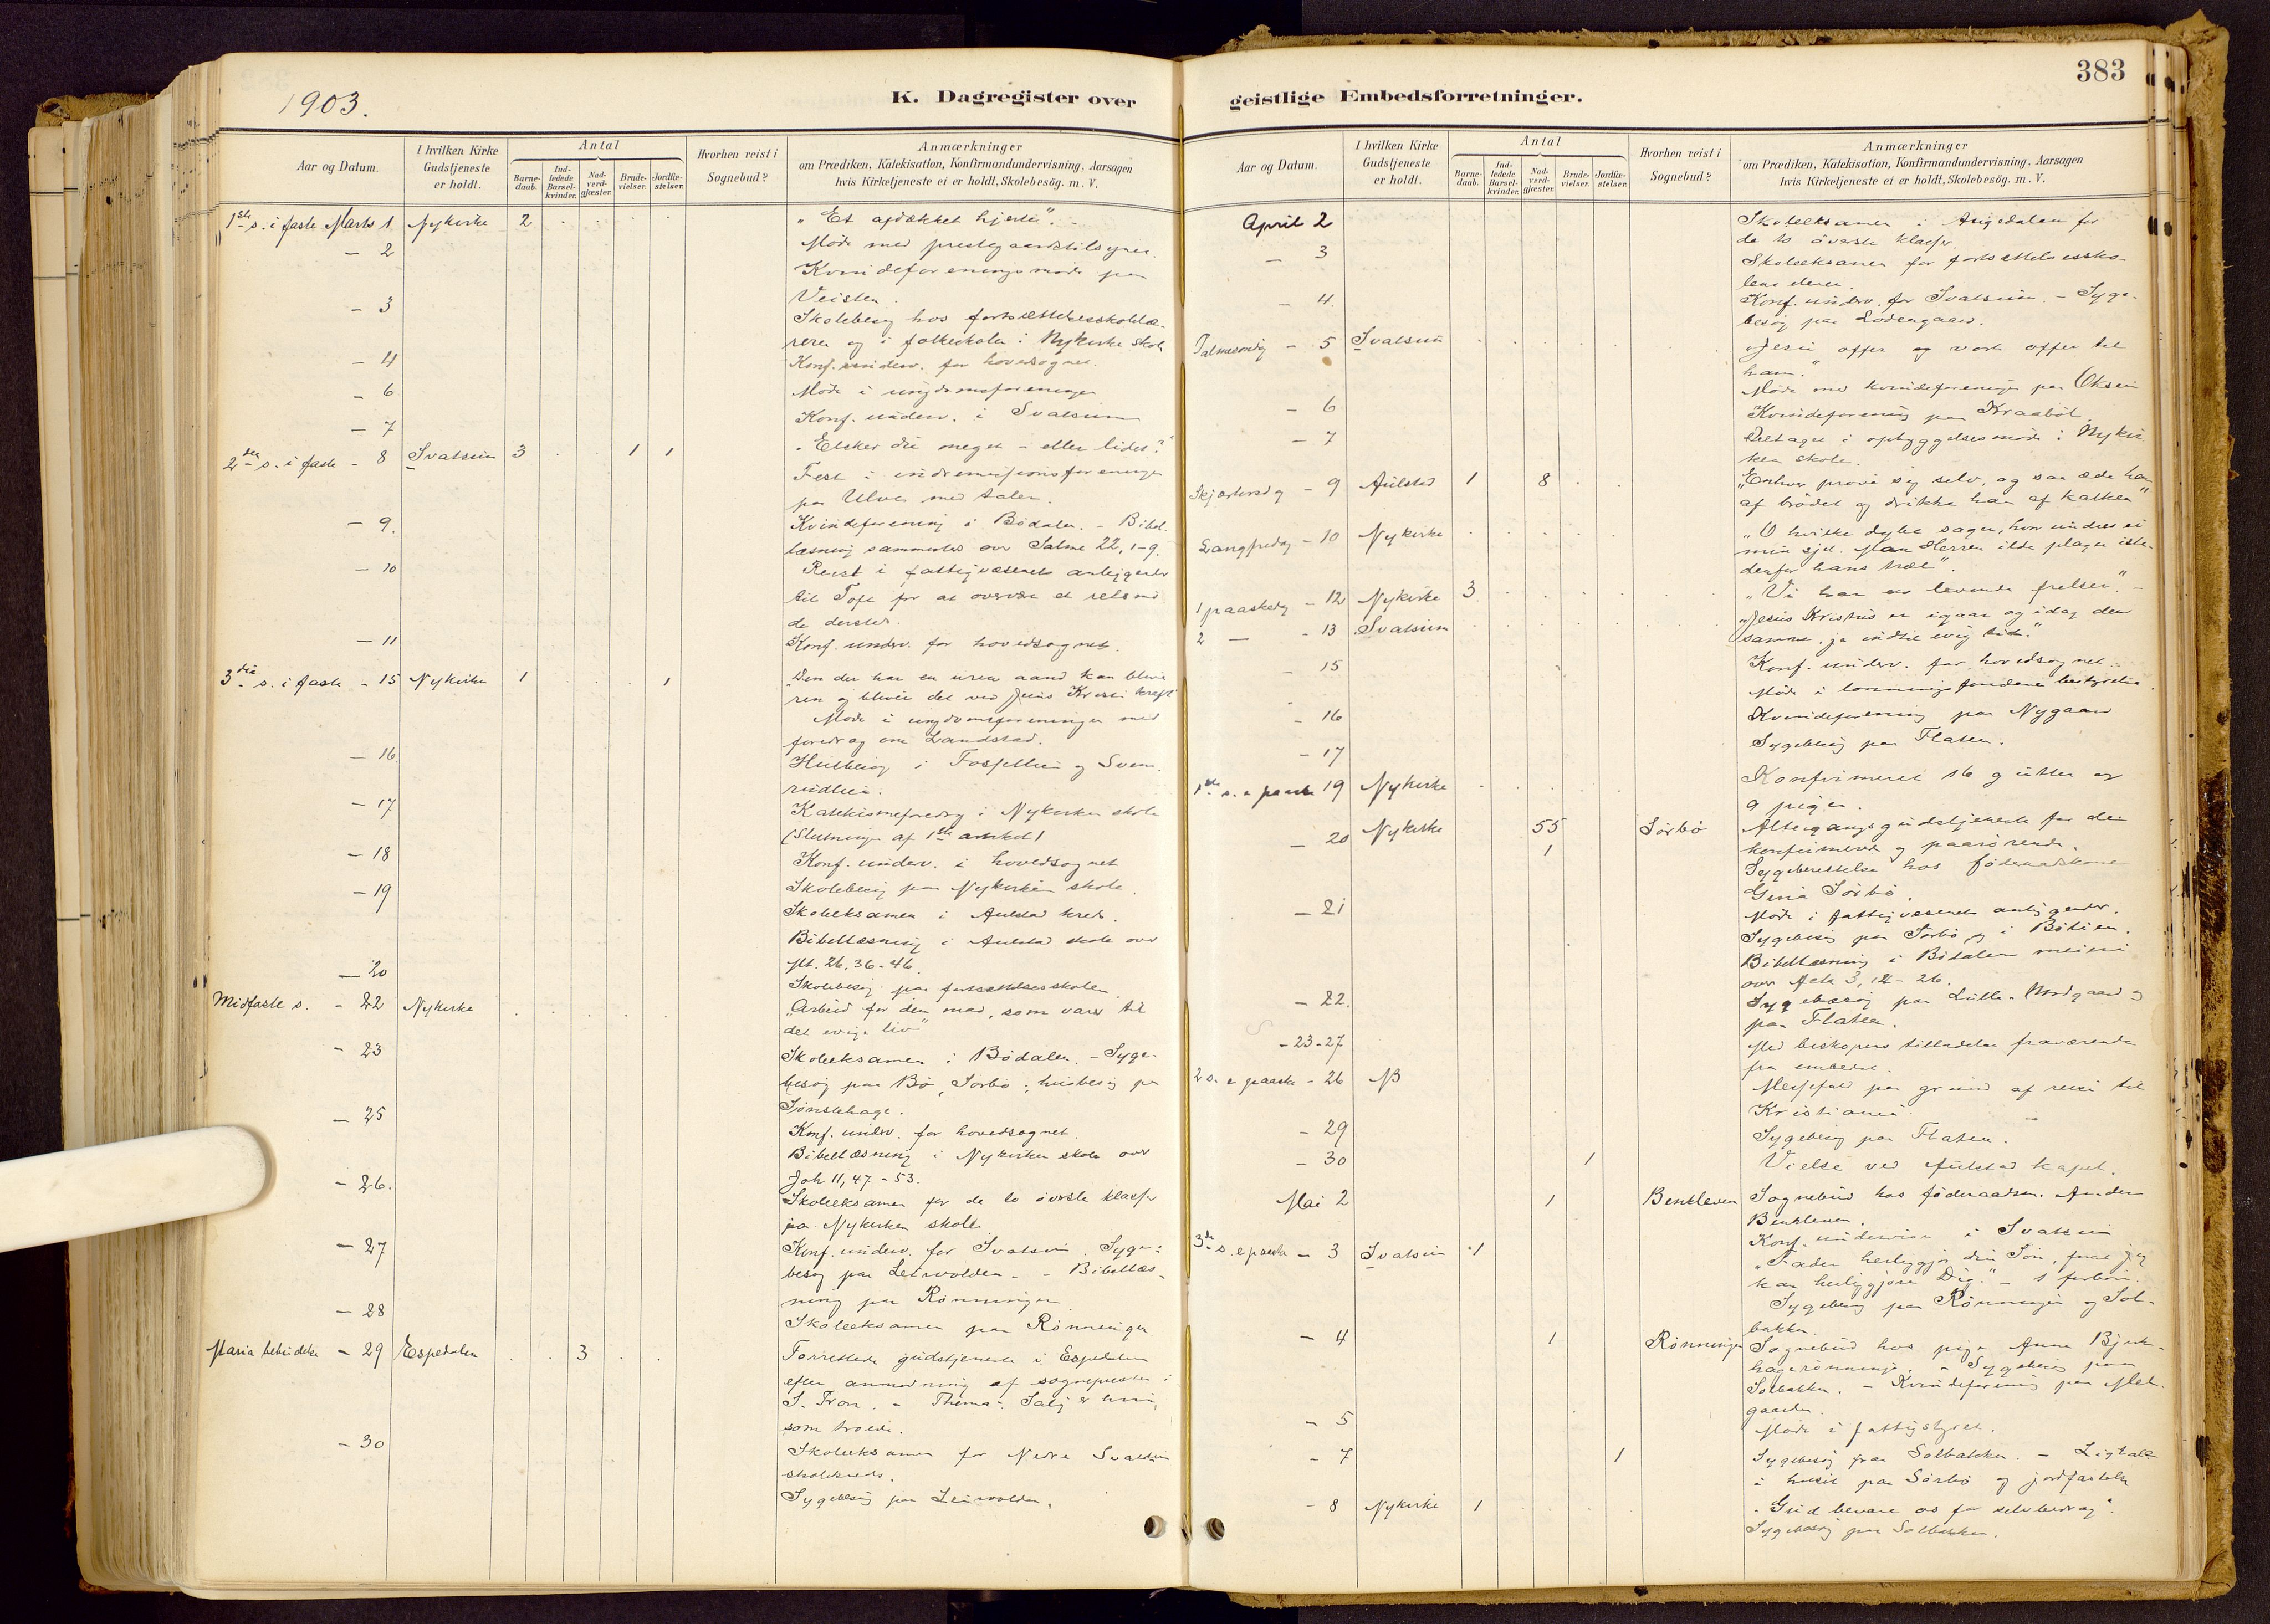 1903.
K. Dagregister over
Aar og Datum.
I hvilken Kirke
Gudstjeneste
er holdt.
Antal
Barne-
daab.
Ind-
ledede
Barsel-
kvinder.
Nad-
verd-
gjæster.
Brude-
vielser.
Jordfæ-
stelser.
Hvorhen reist i
Sognebud?
Anmærkninger
om Prædiken, Katekisation, Konfirmandundervisning, Aarsagen
hvis Kirketjeneste ei er holdt, Skolebesög. m. V.
1ste s. i faste Marts 1 Nykirke 2 „Et afdækket hjerte".
- 2 Möde med prestegaardstilsynet.
Kvindeforeningsmöde paa
Veisten.
- 3 Skolebesög hos fortsættelsesskolelæ-
reren og i folkeskolen i Nykirke skole
- 4 Konf. underv. for hovedsognet.
- 6 Möde i ungdomsforeningen
- 7 Konf. underv. i Svatsum
2den s. i faste - 8 Svatsum 3 1 1 „Elsker du meget - eller lidet?"
Fest i indremissionsforeningen
paa Ulven med taler.
- 9. Kvindeforening i Bödalen. - Bibel-
læsning sammesteds over Salme 22, 1-9.
- 10 Reist i fattigvæsenets anliggender
til Toft for at overvære et
de dersted.
- 11 Konf. underv. for hovedsognet.
3die s. i faste - 15 Nykirke 1 1 „Den der har en uren aand kan blive
ren og bliver det ved Jesu Kristi kraft"
Möde i ungdomsforeningen med
foredrag om Landstad.
- 16. Husbesög i Fosslien og Sven-
rudlien.
- 17 Katekismeforedrag i Nykirken skole
(Slutningen af 1ste artikel)
- 18 Konf. underv. i hovedsognet
- 19 Skolebesög paa Nykirken skole.
Skoleeksamen i Aulstad kreds.
Bibellæsning i Aulstad skole over
Mt. 26, 36-46.
- 20 Skolebesög paa fortsættelsesskolen
Midfaste s. - 22 Nykirke „Arbeid for den mad, som varer til
det evige liv"
- 23 Skoleeksamen i Bödalen. - Syge-
besög paa Bö, Sörbö; husbesög paa
Tönstehage.
- 25 Konf. underv. for hovedsognet.
Bibellæsning i Nykirken skole over
Joh 11, 47-53.
- 26. Skoleeksamen for de to överste klasser
paa Nykirken skole
- 27 Konf. underv. for Svatsum. Syge-
besög paa Leirvolden. - Bibellæs-
ning paa Rönningen
- 28 Skoleeksamen paa Rönningen
Maria bebudelse - 29 Espedalen 3 Forrettede gudstjeneste i Espedalen
efter anmodning af sognepresten i
S. Fron. - Thema: Salig er hun,
som troede.
- 30 Skoleeksamen for Nedre Svatsum
skolekreds.
Sygebesög paa Leirvolden.
383
geistlige Embedsforretninger.
Aar og Datum.
I hvilken Kirke
Gudstjeneste
er holdt.
Antal
Barne-
daab.
Ind-
ledede
Barsel-
kvinder.
Nad-
verd-
gjæster.
Brude-
vielser.
Jordfæ-
stelser.
Hvorhen reist i
Sognebud?
Anmærkninger
om Prædiken, Katekisation, Konfirmandundervisning, Aarsagen
hvis Kirketjeneste ei er holdt, Skolebesög. m. V.
April 2 Skoleeksamen i for
de to överste klasser.
- 3 Skoleeksamen for fortsættelsessko-
lens elever.
- 4. Konf. underv. for Svatsum. - Syge-
besög paa Lodengaard.
Palmesöndag - 5 Svatsum „Jesu offer og vort offer til
ham."
Möde med kvindeforeningen paa Oksum
- 6 Kvindeforening paa Kraaböl.
- 7 Deltaget i opbyggelsesmöde i Nykir-
ken skole.
Skjærtorsdag - 9 Aulstad 1 8 „Enhver pröve sig selv, og saa æde han
af brödet og drikke han af kalken"
Langfredag - 10 Nykirke „O hvilke dybe sager, hvor undres ei
min sjel. Man Herren ilde plager iste-
denfor hans træl".
1 paaskedag - 12 Nykirke 3 „Vi har en levende frelser." -
2 - - 13 Svatsum „Jesus Kristus er igaar og idag den
samme, ja indtil evig tid."
- 15 Konf. underv. for hovedsognet.
Möde i bestyrelse.
- 16 Kvindeforening paa Nygaard
- 17 Sygebesög paa Flaten.
1ste s. e paaske 19 Nykirke Konfirmeret 16 gutter og
9 piger.
- 20 Nykirke 55 Sörbö Altergangsgudstjeneste for de
1 konfirmerede og paarörende.
Sygeberettelse hos föderaadskone
Gina Sörbö.
- 21 Möde i fattigvæsenets anliggender.
Sygebesög paa Sörbö og i Bölien.
Bibellæsning i Bödalen meieri
over Acta 3, 12-26.
- 22. Sygebesög paa Lille-Modgaard og
paa Flaten.
- 23-27 Med biskopens tilladelse fraværende
fra embedet.
2 s. e paaske - 26 NB Messefald paa grund af reise til
Kristiania.
- 29 Sygebesög paa Flaten.
- 30 1 Vielse ved Aulstad kapel.
Mai 2 1 Benkleven Sognebud hos föderaadsm. Anders
Benkleven.
Konf. underv. i Svatsum
3die s. e paaske - 3 Svatsum 1 „Fader herliggjör din Sön, forat jeg
kan herliggjöre Dig." - 1 forbön.
Sygebesög paa Rönningen og Sol-
bakken.
- 4 1 Rönningen Sognebud hos pige Anne
- Sygebesög paa
Solbakken. - Kvindeforening paa
gaarden.
- 5 Möde i fattigstyret.
- 7 1 Sygebesög paa Solbakken. - Ligtale
i huset paa Sörbö og jordfæstelse
- 8 Nykirke 1 „Gud bevare os for selvbedrag".
Sygebesög paa Solbakken.